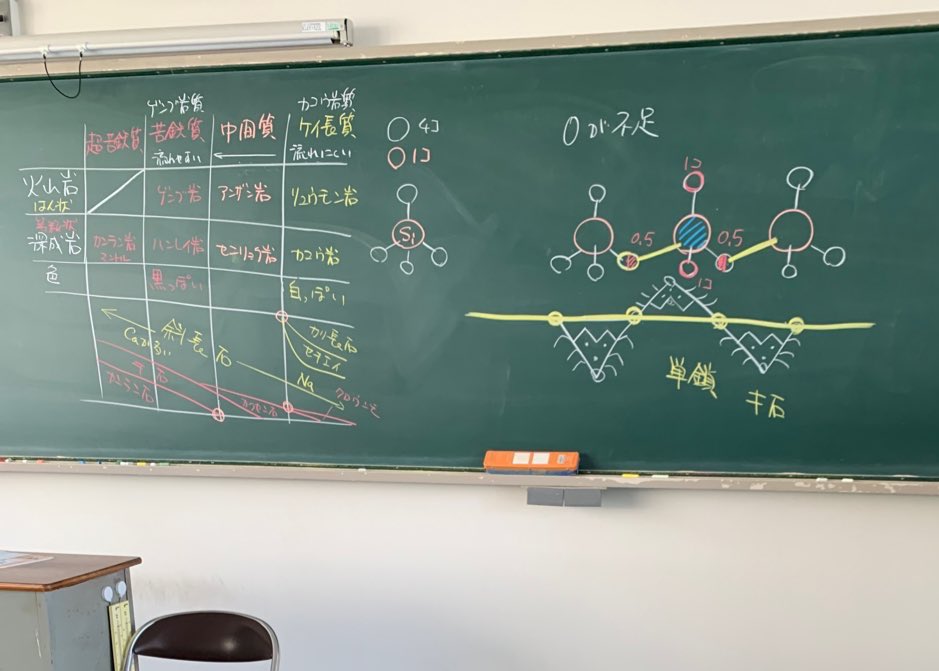 ゲンブ岩質
カコウ岩質
超苦鉄質
苦鉄質
中間質
ケイ長質
流れやすい
流れにくい
火山岩
はん状
ゲンブ岩
アンザン岩
リュウモン岩
等粒状
深成岩
カンラン岩
マントル
ハンレイ岩
センリョク岩
カコウ岩
色
黒っぽい
白っぽい
斜長石
カリ長石
セキエイ
Na
キ石
カンラン石
カクセン石
クロウンモ
○4コ
○1コ
Si
Oが不足
1コ
0.5
0.5
1コ
単鎖
キ石